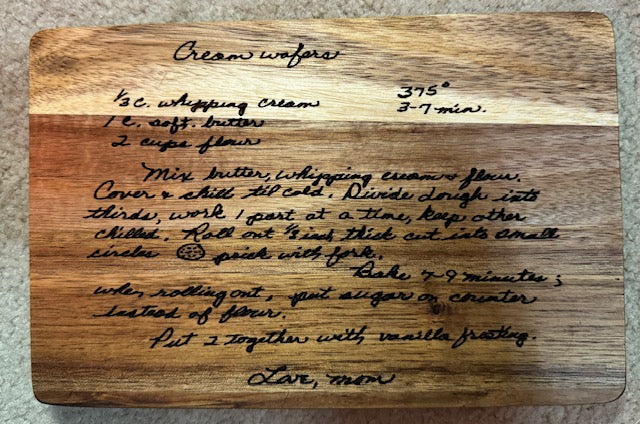 Cream wafers
1/3 c. whipping cream
375°
3-7 min.
1 c. soft. butter
2 cups flour
Mix butter, whipping cream & flour.
Cover & chill til cold. Divide dough into
thirds, work 1 part at a time, keep other
chilled. Roll out 1/8 inch thick cut into small
circles prick with fork.
Bake 7-9 minutes;
when rolling out, put sugar on counter
instead of flour.
Put 2 together with vanilla frosting.
Love, mom